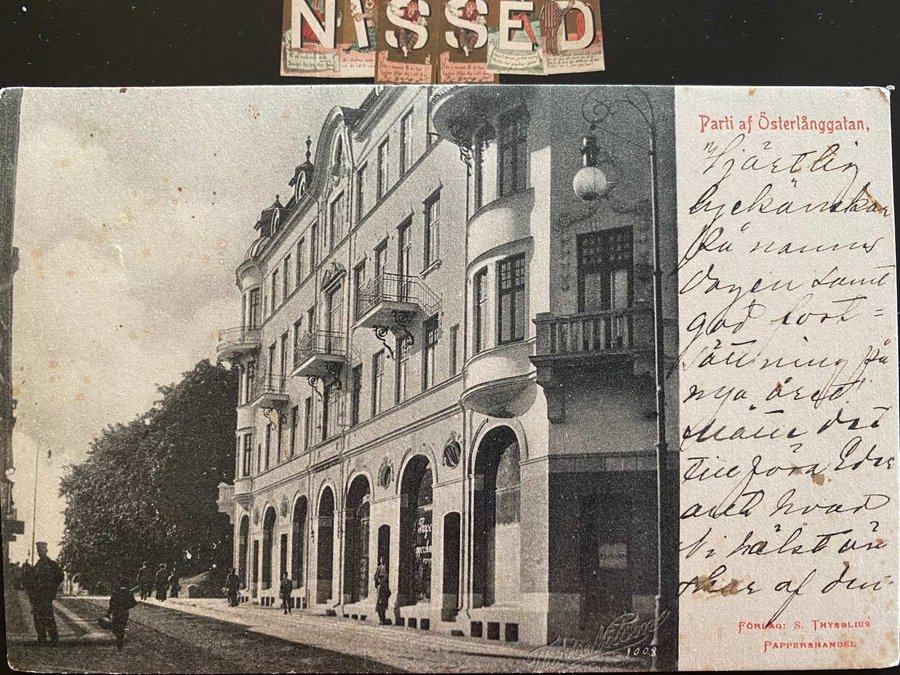 NISSED
Parti af Österlånggatan,
Hjärtlig
lyckönskan
På namns
dagen samt
god fort=
sättning på
nya året
Måtte det
tillföra Eder
allt hvad
Ni hälst ön
skar af den
FÖRLAG: S. THYSELIUS
PAPPERSHANDEL
1008